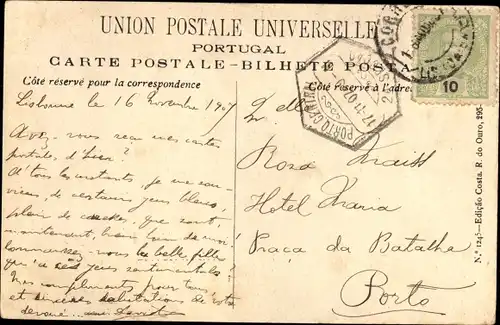 UNION POSTALE UNIVERSELLE
PORTUGAL
CARTE POSTALE-BILHETE POST
Côté réservé pour la correspondence
Côté réservé à l'adre
CORRE
10
PORTO CENTRAL
17-11-07
Lisbonne le 16 Novembre 1907
Avez vous reçu mes cartes
postale, d'hier?
A tous les instants, je me sou-
viens, de certains yeux bleus,
plein de que sont,
maintenant, bien loin de moi!
vous la belle fille
qui a ces yeux sentimentals?
Mes compliments pour tous
et sincères salutations de votre
devoué
Delle
Rosa Kraiss
Hotel Maria
Praça da Batalha
Porto
N.º 1245-Edição Costa. R. do Ouro, 295-